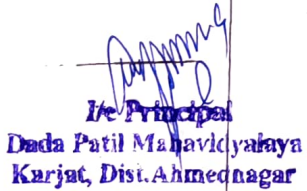 I/c Principal
Dada Patil Mahavidyalaya
Karjat, Dist.Ahmednagar